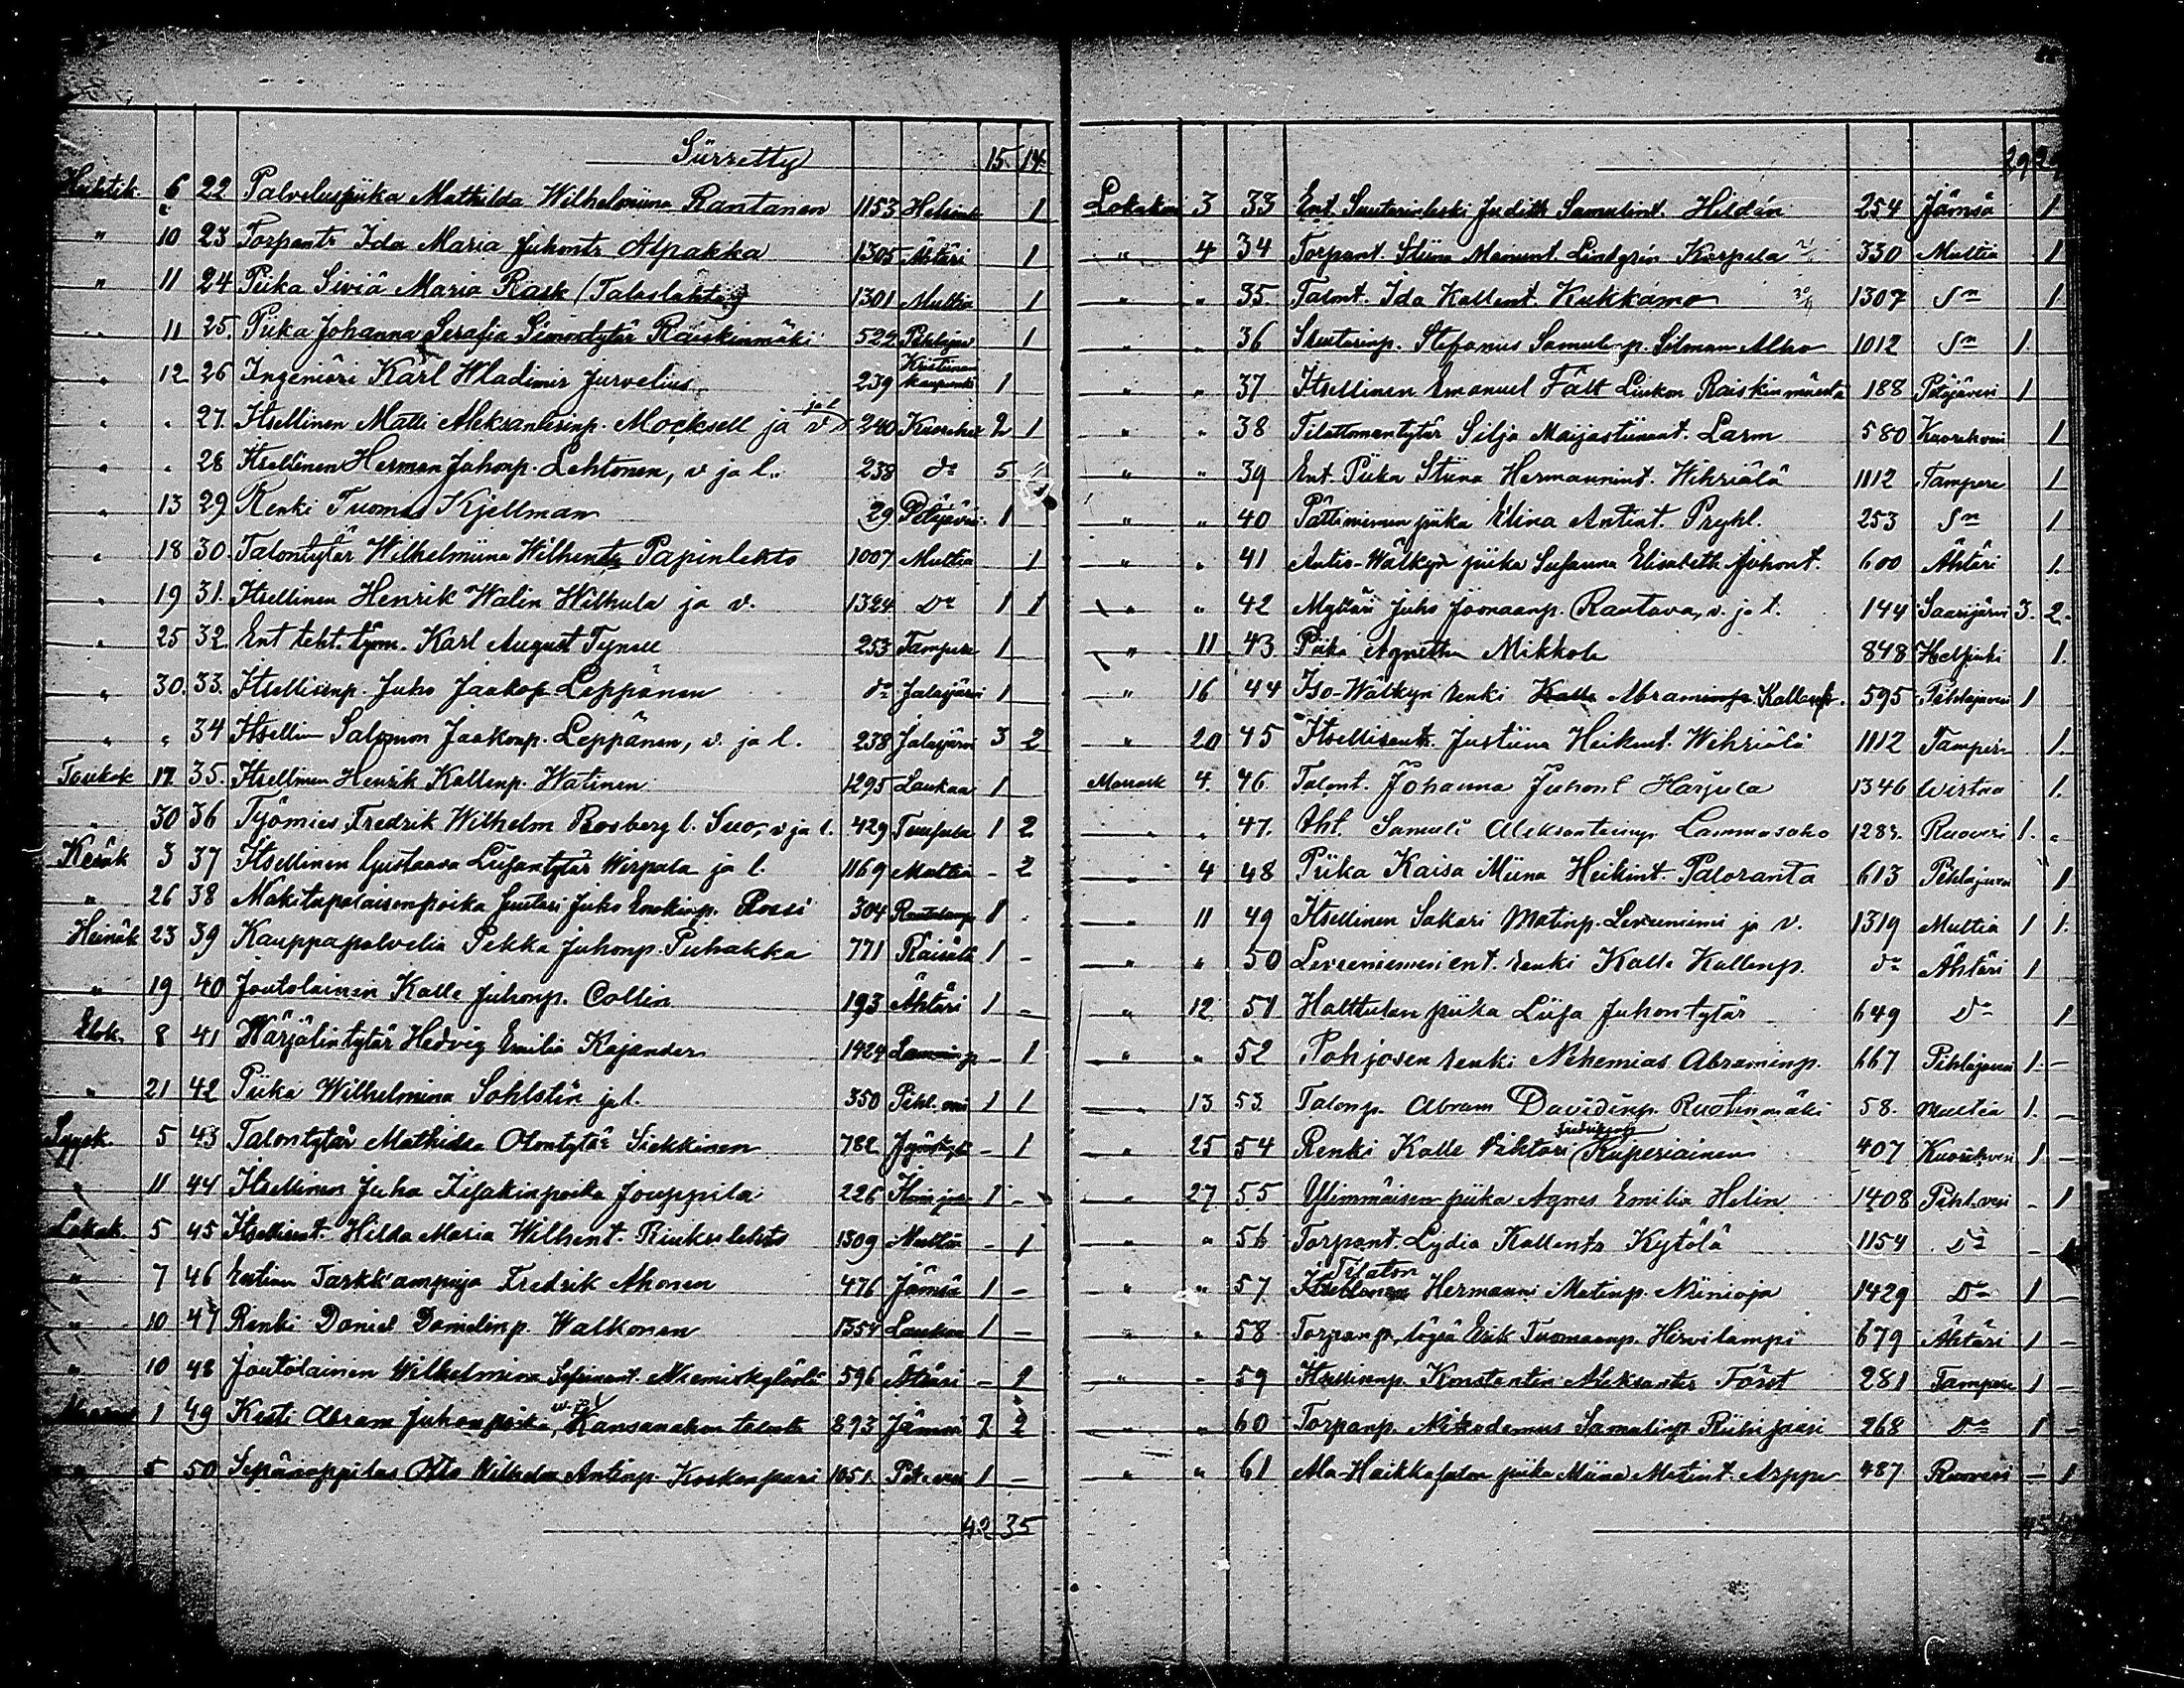 Siirretty 15. 14.
Huhtik. 6 22 Palveluspiika Mathilda Wilhelmiina Rantanen 1153 Helsinki 1
" 10 23 Torpantr Ida Maria Juhontr Alpakka 1305 Ähtäri 1
" 11 24 Piika Siviä Maria Rask (Talaslahta 1301 Multia 1
" 11 25. Piika Johanna Serafia Simontytär Raiskinmäki 522 Pihlajav 1
" 12 26 Ingeniöri Karl Wladimir Jurvelius 239 Kristiinan kaupunki 1
" " 27. Itsellinen Matti Aleksanterinp. Mocksell ja v ja l 240 Kuorehve 2 1
" " 28 Itsellinen Herman Juhonp. Lehtonen, v ja l. 238 do 5
" 13 29 Renki Tuomas Kjellman 29 Petäjäve. 1
" 18 30. Talontytär Wilhelmiina Wilhentr Papinlehto 1007 Multia 1
" 19 31. Itsellinen Henrik Walin Wilhula ja v. 1324 Do 1 1
" 25 32. Ent teht. työm. Karl August Tynell 253 Tampere 1
" 30. 33. Itsellisenp. Juho Jaakop Leppänen do Jalasjärvi 1
" " 34 Itsellin Salomon Jaakonp. Leppänen, v. ja l. 238 Jalasjärvi 3 2
Toukok 17 35. Itsellinen Henrik Kallenp. Watinen 1295 Laukaa 1
30 36 Työmies Fredrik Wilhelm Rosberg l. Suo, v ja l. 429 Tuusula 1 2
Kesäk 3 37 Itsellinen Gustaava Liisantytär Wirpala ja l. 1169 Multia - 2
" 26 38 Mäkitupalaisenpoika Juho Enokinp. Rossi 304 Rautalamp 1 -
Heinäk 23 39 Kauppapalvelia Pekka Juhonp. Puhakka 771 Räisälä 1 -
" 19 40 Joutolainen Kalle Juhonp. Collin 193 Ähtäri 1 -
Elok. 8 41 Wärjälintytär Hedvig Emilia Kajander 1424 Lammin p - 1
" 21 42 Piika Wilhelmina Sohlstén ja l. 350 Pihl. vesi 1 1
Syysk. 5 43 Talontytär Mathilda Otontytär Siekkinen 782 - 1
" 11 44 Itsellinen Juha Iisakinpoika Jouppila 226 1 -
Lokak. 5 45 Itsellisent. Hilda Maria Wilhent. Riukulehto 1309 Multia - 1
" 7 46 Entinen Tarkk'ampuja Fredrik Ahonen 476 Jämsä 1 -
" 10 47 Renki Daniel Danielinp. Walkonen 1354 Laukaa 1 -
" 10 48 Joutolainen Wilhelmina Niemiskylästä 596 Ähtäri - 1
Marrask 1 49 Kesti Abram Juhonpoika, Kansanahon talosta 893 Jämsä 2 2
" 5 50 Sepänoppilas Otto Wilhelm Antinp. Koskenpaasi 1051 1 -
42 35
29 29
Lokakuu 3 33 Ent. Suutarinleski Judith Samulint. Hildén 254 Jämsä 1
" 4 34 Torpant. Stiina Manunt. Lindgrén Karpela 330 Multia 1
" " 35 Talont. Ida Kallent. Kukkamo 1307 Sn 1
" " 36 Suutarinp. Stefanus Samulinp. Silman Alho 1012 Sn 1
" " 37 Itsellinen Emanuel Fält Liukon Raiskinmäestä 188 Petäjävesi 1
" " 38 Tilattomantytär Silja Maijastiinant. Larm 580 Kuorehvesi 1
" " 39 Ent. Piika Stiina Hermannint. Wihriälä 1112 Tampere 1
" " 40 Pättiniemen piika Elina Antint. Pryhl. 253 Sn 1
" " 41 Antio-Wälkyn piika Susanna Elisabeth Juhont. 600 Ähtäri 1.
" " 42 Mylläri Juho Joonaanp. Rautava, v. ja l. 144 Saarijärvi 3. 2.
" 11 43 Piika Agnetha Mikkola 848 Helsinki 1.
" 16 44 Iso-Wälkyn renki Kalle Abraminp. Kallenp. 595 Pihlajavesi 1
" 20 45 Itsellisentr. Justiina Heikint. Wihriälä 1112 Tampere 1.
Marrask 4. 46 Talont. Johanna Juhont Harjula 1346 Wirtaa 1.
" " 47. Samuli Aleksanterinp. Lammasaho 1283. Ruovesi 1.
" 4 48 Piika Kaisa Miina Heikint. Paloranta 613 Pihlajavesi 1
" 11 49 Itsellinen Sakari Matinp. Leveeniemi ja v. 1319 Multia 1 1.
" " 50 Leveeniemen ent. renki Kalle Kallenp. do Ähtäri 1
" 12 51 Halttulan piika Liisa Juhontytär 649 Do 1
" " 52 Pohjosen renki Nehemias Abraminp. 667 Pihlajavesi 1. -
" 13 53. Talonp. Abram Davidinp. Ruotinmäki 58. Multia 1. -
" 25 54 Renki Kalle Viktori Fredrikinp (Kuperiainen 407 Kuorehvesi 1 -
" 27 55 Ylimmäisen piika Agnes Emilia Helin 1408 Pihl.vesi - 1
" " 56 Torpant. Lydia Kallentr Kytölä 1154 Do -
" " 57 Itsellinen Tilaton Hermanni Matinp. Niinioja 1429 Do 1 -
" " 58 Torpanp. Erik Tuomaanp. Hirvilampi 679 Ähtäri 1 -
" - 59 Itsellisenp. Konstantin Aleksanter Först 281 Tampere 1 -
" " 60 Torpanp. Nikodemus Samulinp. 268 Do 1 -
" " 61 Ala-Haikka talon piika Miina Matint. Arppe 487 Ruovesi - 1
45